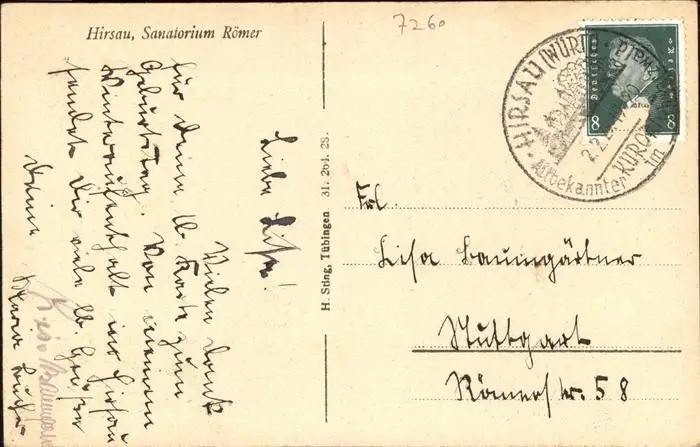 7260
Hirsau, Sanatorium Römer
Liebe Lisa!
Vielen Dank
für Deine lb. Karte zum
Geburtstag. Von meinem
Winteraufenthalt in Hirsau
sendet Dir viele lb. Grüße
Deine
Maria
H. Sting, Tübingen 31. 264. 28.
HIRSAU (WÜRTT.
Altbekannter KURORT
im
Deutsches Reich
8 8
Frl.
Lisa Baumgärtner
Stuttgart
Römerstr. 58